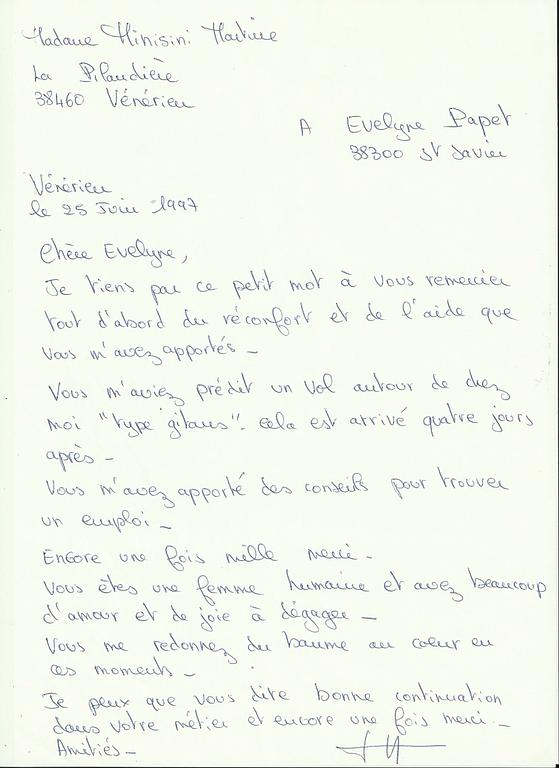 Madame Minisini Martine
La Pilaudière
38460 Vénérieu
A Evelyne Papet
38300 St Savin
Vénérieu
le 25 Juin 1997
Chère Evelyne,
Je tiens par ce petit mot à vous remercier
tout d'abord du réconfort et de l'aide que
vous m'avez apportés -
Vous m'aviez prédit un vol autour de chez
moi "type gitans". cela est arrivé quatre jours
après -
Vous m'avez apporté des conseils pour trouver
un emploi -
Encore une fois mille merci -
Vous êtes une femme humaine et avez beaucoup
d'amour et de joie à dégager -
Vous me redonnez du baume au coeur en
ces moments -
Je peux que vous dire bonne continuation
dans votre métier et encore une fois merci -
Amitiés -